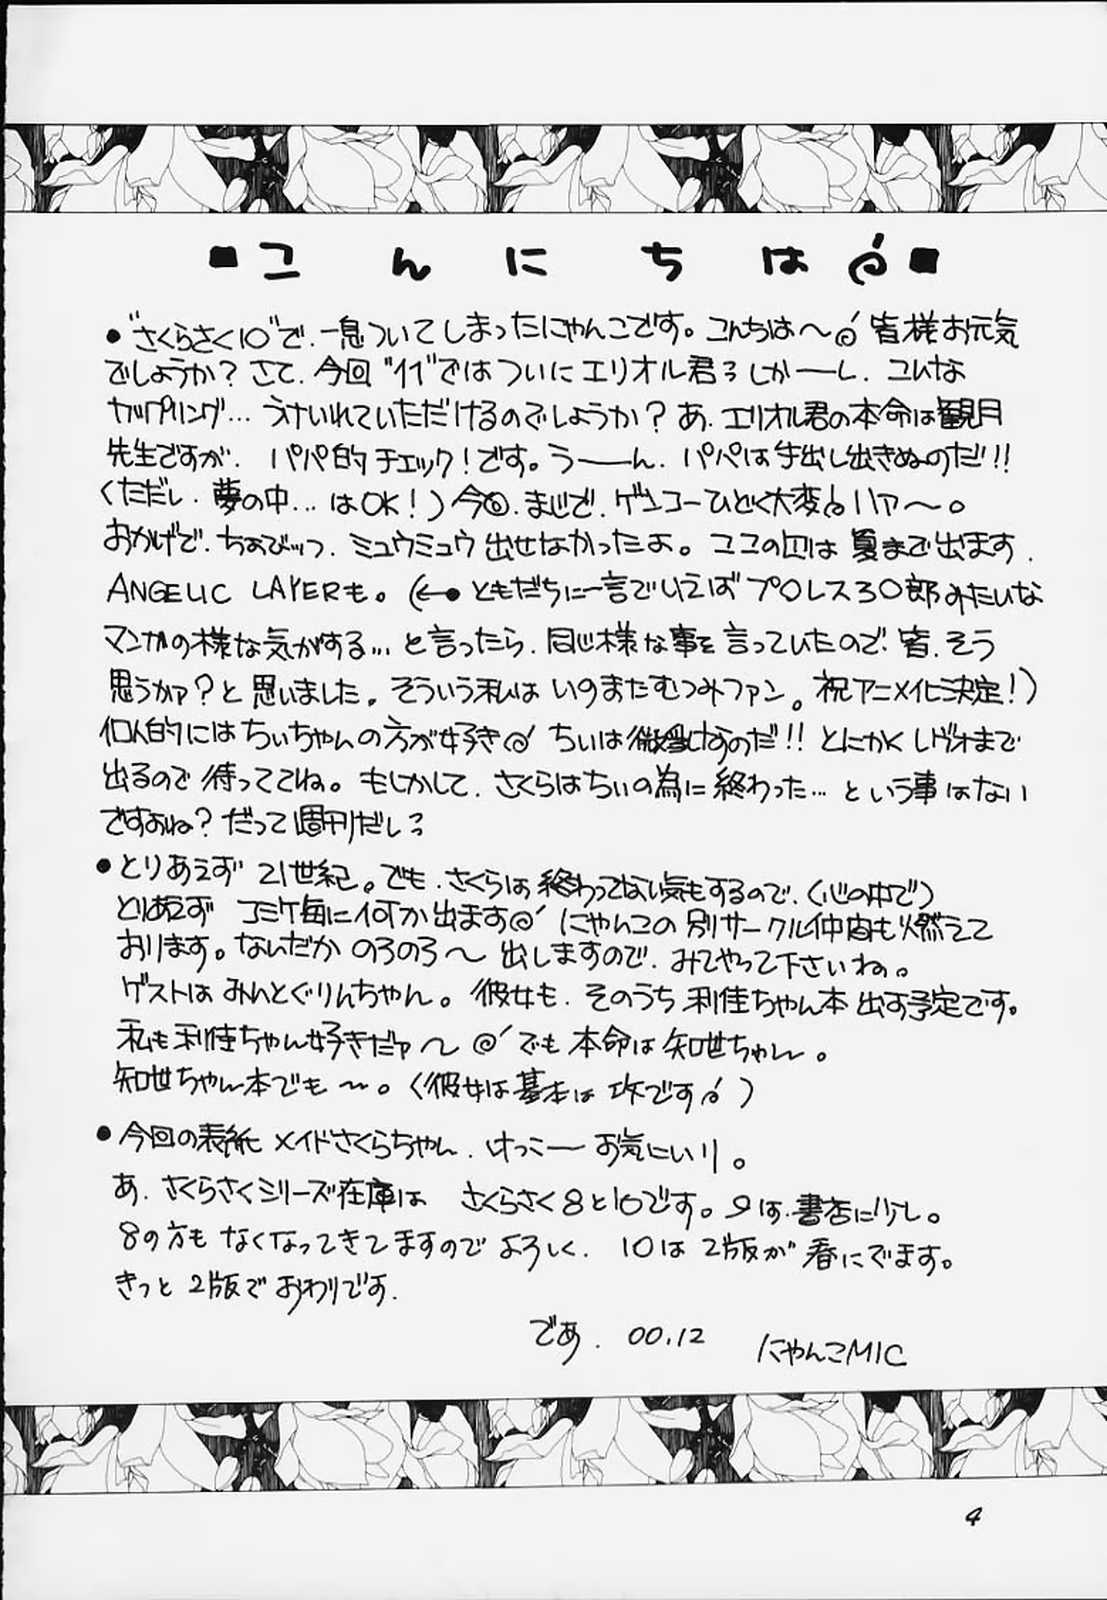 ■こんにちは■
●"さくらさく10"で、一息ついてしまったにゃんこです。こんちは〜 皆様お元気
でしょうか?さて、今回"11"ではついにエリオル君 しかーし、こんな
カップリング… うけいれていただけるのでしょうか?あ、エリオル君の本命は観月
先生ですが、パパ的チェック!です。うーーん、パパは手出し出きぬのだ!!
(ただし、夢の中…はOK!)今回、まじで、ゲンコーひどく大変 ハァ〜。
おかげで、ちょびッツ、ミュウミュウ出せなかったよ。ココの は夏まで出ます。
ANGELIC LAYERも。(←●ともだちに一言でいえばプ○レス3○郎みたいな
マンガの様な気がする…と言ったら、同じ様な事を言っていたので、皆、そう
思うかァ?と思いました。そういう私はいのまたむつみファン。祝アニメ化決定!)
個人的にはちぃちゃんの方が好き ちぃは微乳なのだ!!とにかくレヴォまで
出るので待っててね。もしかして、さくらはちぃの為に終わった…という事はない
ですよね?だって週刊だし
●とりあえず21世紀。でも、さくらは終わってない気もするので、(心の中で)
とりあえず コミケ毎に何か出ます にゃんこの別サークル仲間も燃えて
おります。なんだかのろのろ〜出しますので、みてやって下さいね。
ゲストはみんとぐりんちゃん。彼女も、そのうち利佳ちゃん本出す予定です。
私も利佳ちゃん好きだァ〜 でも本命は知世ちゃん。
知世ちゃん本でも〜。(彼女は基本は攻です)
●今回の表紙 メイドさくらちゃん、けっこーお気にいり。
あ、さくらさくシリーズ在庫は さくらさく8と10です。9は、書店に少し。
8の方もなくなってきてますのでよろしく、10は2版が春にでます。
きっと2版でおわりです、
であ、00.12 にゃんこMIC
4